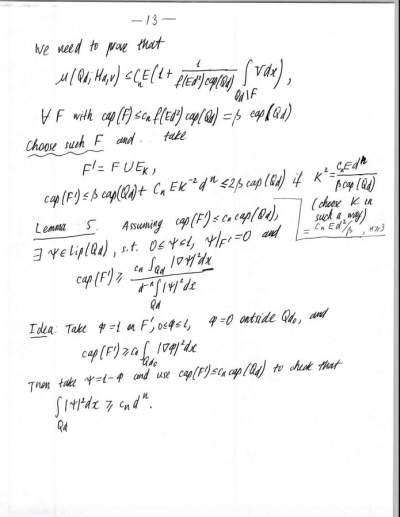 —13—
We need to prove that
μ(Qd; Ha,v) ≤ CnE(1 + 1/(f(Ed²)cap(Qd)) ∫_{Qd\F} Vdx),
∀ F with cap(F) ≤ cn f(Ed²) cap(Qd) = β cap(Qd)
Choose such F and take
F' = F ∪ EK,
cap(F') ≤ β cap(Qd) + Cn EK⁻²dⁿ ≤ 2β cap(Qd) if K² = CnEdⁿ/(β cap(Qd))
(choose K in
such a way)
= CnEd²/β, n≥3
Lemma 5. Assuming cap(F') ≤ cn cap(Qd),
∃ Ψ ∈ Lip(Qd), s.t. 0≤Ψ≤1, Ψ|F' = 0 and
cap(F') ≥ cn ∫_{Qd} |∇Ψ|²dx / d⁻ⁿ ∫_{Qd} |Ψ|²dx
Idea: Take φ=1 on F', 0≤φ≤1, φ=0 outside Qd₀, and
cap(F') ≥ cn ∫_{Qd₀} |∇φ|²dx
Then take Ψ=1-φ and use cap(F') ≤ cn cap(Qd) to check that
∫_{Qd} |Ψ|²dx ≥ cn dⁿ.